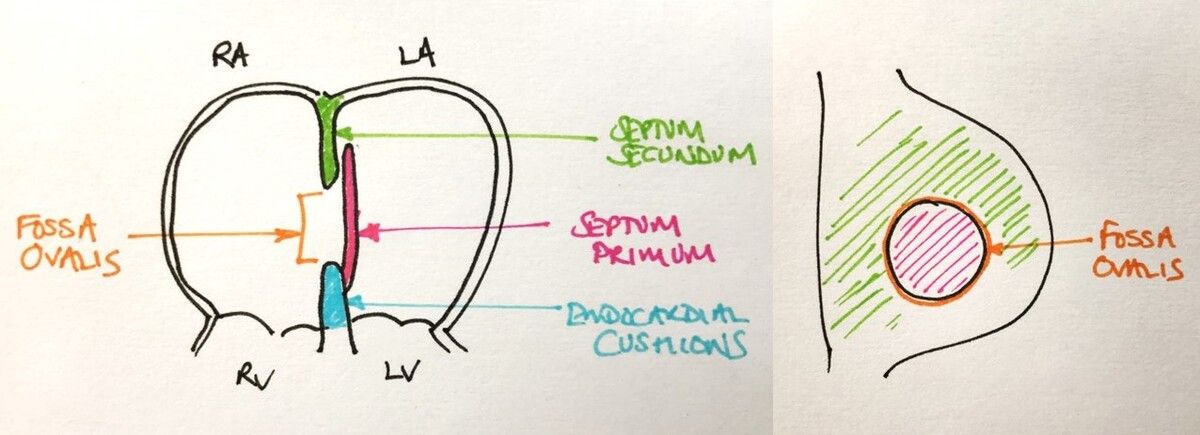 RA
LA
SEPTUM
SECUNDUM
FOSSA
OVALIS
SEPTUM
PRIMUM
ENDOCARDIAL
CUSHIONS
RV
LV
FOSSA
OVALIS